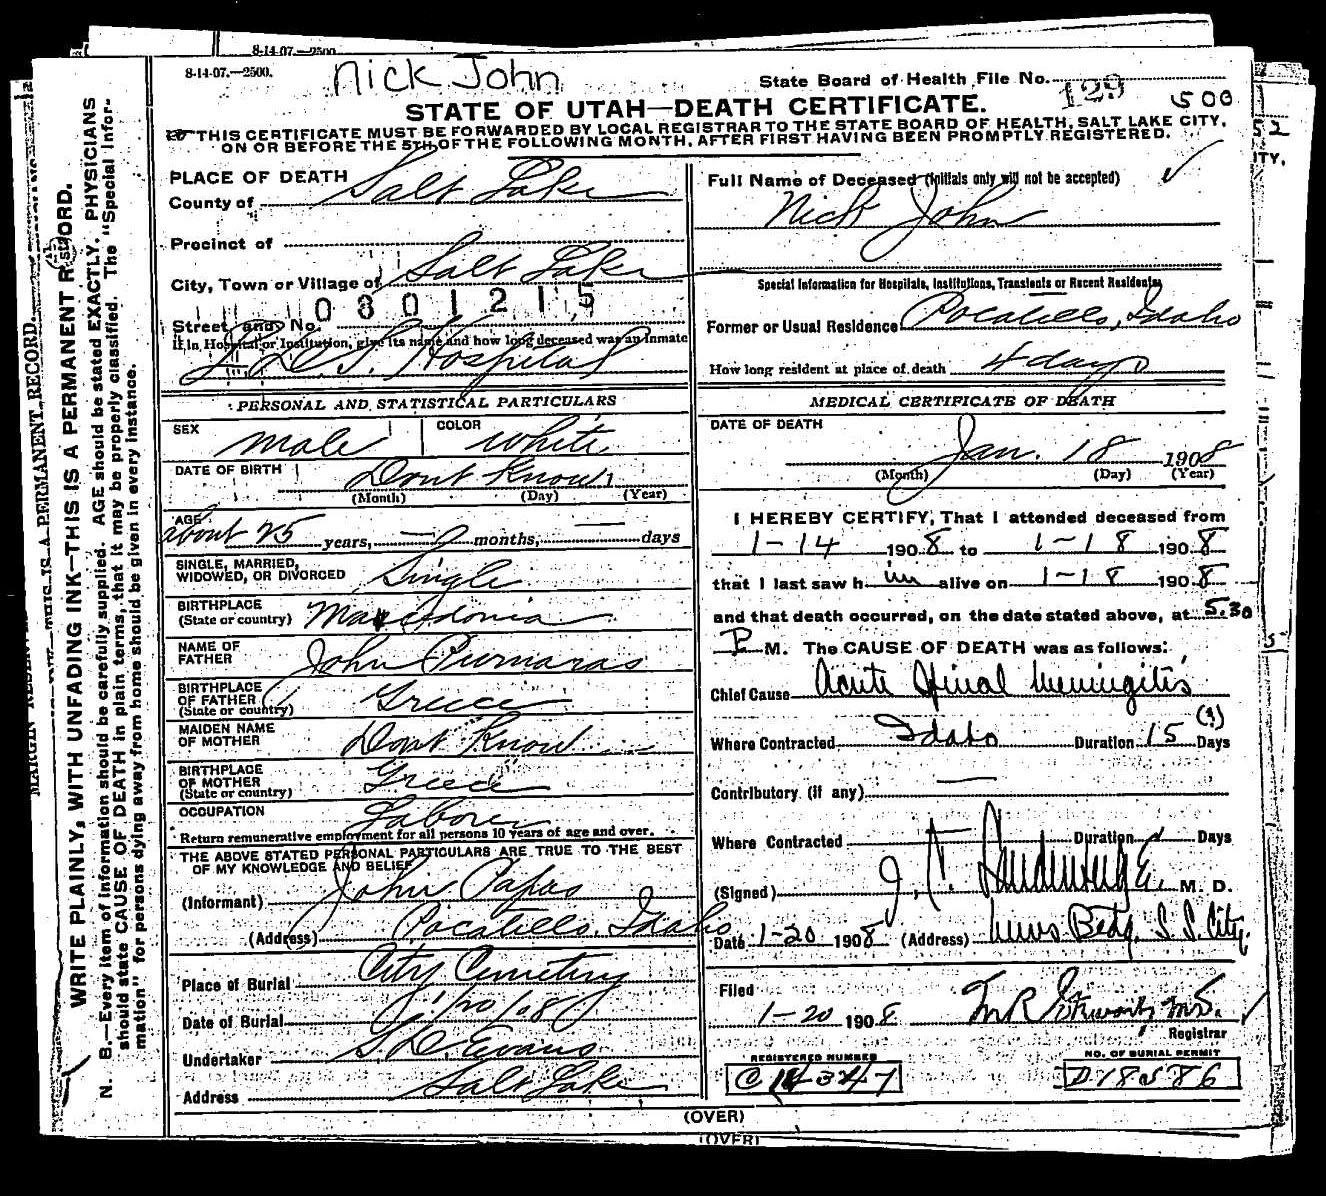 8-14-07.—2500.
8-14-07.—2500.
Nick John
State Board of Health File No. 129
500
STATE OF UTAH—DEATH CERTIFICATE.
THIS CERTIFICATE MUST BE FORWARDED BY LOCAL REGISTRAR TO THE STATE BOARD OF HEALTH, SALT LAKE CITY,
ON OR BEFORE THE 5TH OF THE FOLLOWING MONTH, AFTER FIRST HAVING BEEN PROMPTLY REGISTERED.
PLACE OF DEATH
County of Salt Lake
Precinct of
City, Town or Village of Salt Lake
0801215
Street and No.
If in Hospital or Institution, give its name and how long deceased was an Inmate
L.D.S. Hospital
PERSONAL AND STATISTICAL PARTICULARS
SEX male COLOR white
DATE OF BIRTH Dont Know
(Month) (Day) (Year)
AGE about 25 years, — months, — days
SINGLE, MARRIED,
WIDOWED, OR DIVORCED Single
BIRTHPLACE
(State or country) Macedonia
NAME OF
FATHER John Purnaras
BIRTHPLACE
OF FATHER
(State or country) Greece
MAIDEN NAME
OF MOTHER Dont Know
BIRTHPLACE
OF MOTHER
(State or country) Greece
OCCUPATION Laborer
Return remunerative employment for all persons 10 years of age and over.
THE ABOVE STATED PERSONAL PARTICULARS ARE TRUE TO THE BEST
OF MY KNOWLEDGE AND BELIEF
(Informant) John Papas
(Address) Pocatello, Idaho
Place of Burial City Cemetery
Date of Burial 1/20/08
Undertaker S. D. Evans
Address Salt Lake
Full Name of Deceased (Initials only will not be accepted)
Nick John
Special Information for Hospitals, Institutions, Transients or Recent Residents
Former or Usual Residence Pocatello, Idaho
How long resident at place of death 4 days
MEDICAL CERTIFICATE OF DEATH
DATE OF DEATH
Jan. 18 1908
(Month) (Day) (Year)
I HEREBY CERTIFY, That I attended deceased from
1-14 1908 to 1-18 1908
that I last saw him alive on 1-18 1908
and that death occurred, on the date stated above, at 5.30
P M. The CAUSE OF DEATH was as follows:
Chief Cause Acute Spinal Meningitis
(?)
Where Contracted Idaho Duration 15 Days
Contributory (if any) —
Where Contracted Duration Days
(Signed) J. F. M. D.
Date 1-20 1908 (Address) News Bldg. S. L. City.
Filed
1-20 1908 M R Stewart M.D.
Registrar
REGISTERED NUMBER
C 14347
NO. OF BURIAL PERMIT
D 18586
(OVER)
(OVER)
MARGIN RESERVED
THIS IS A PERMANENT RECORD.
WRITE PLAINLY, WITH UNFADING INK—THIS IS A PERMANENT RECORD.
N. B.—Every item of information should be carefully supplied. AGE should be stated EXACTLY. PHYSICIANS
should state CAUSE OF DEATH in plain terms, that it may be properly classified. The "Special Infor-
mation" for persons dying away from home should be given in every instance.